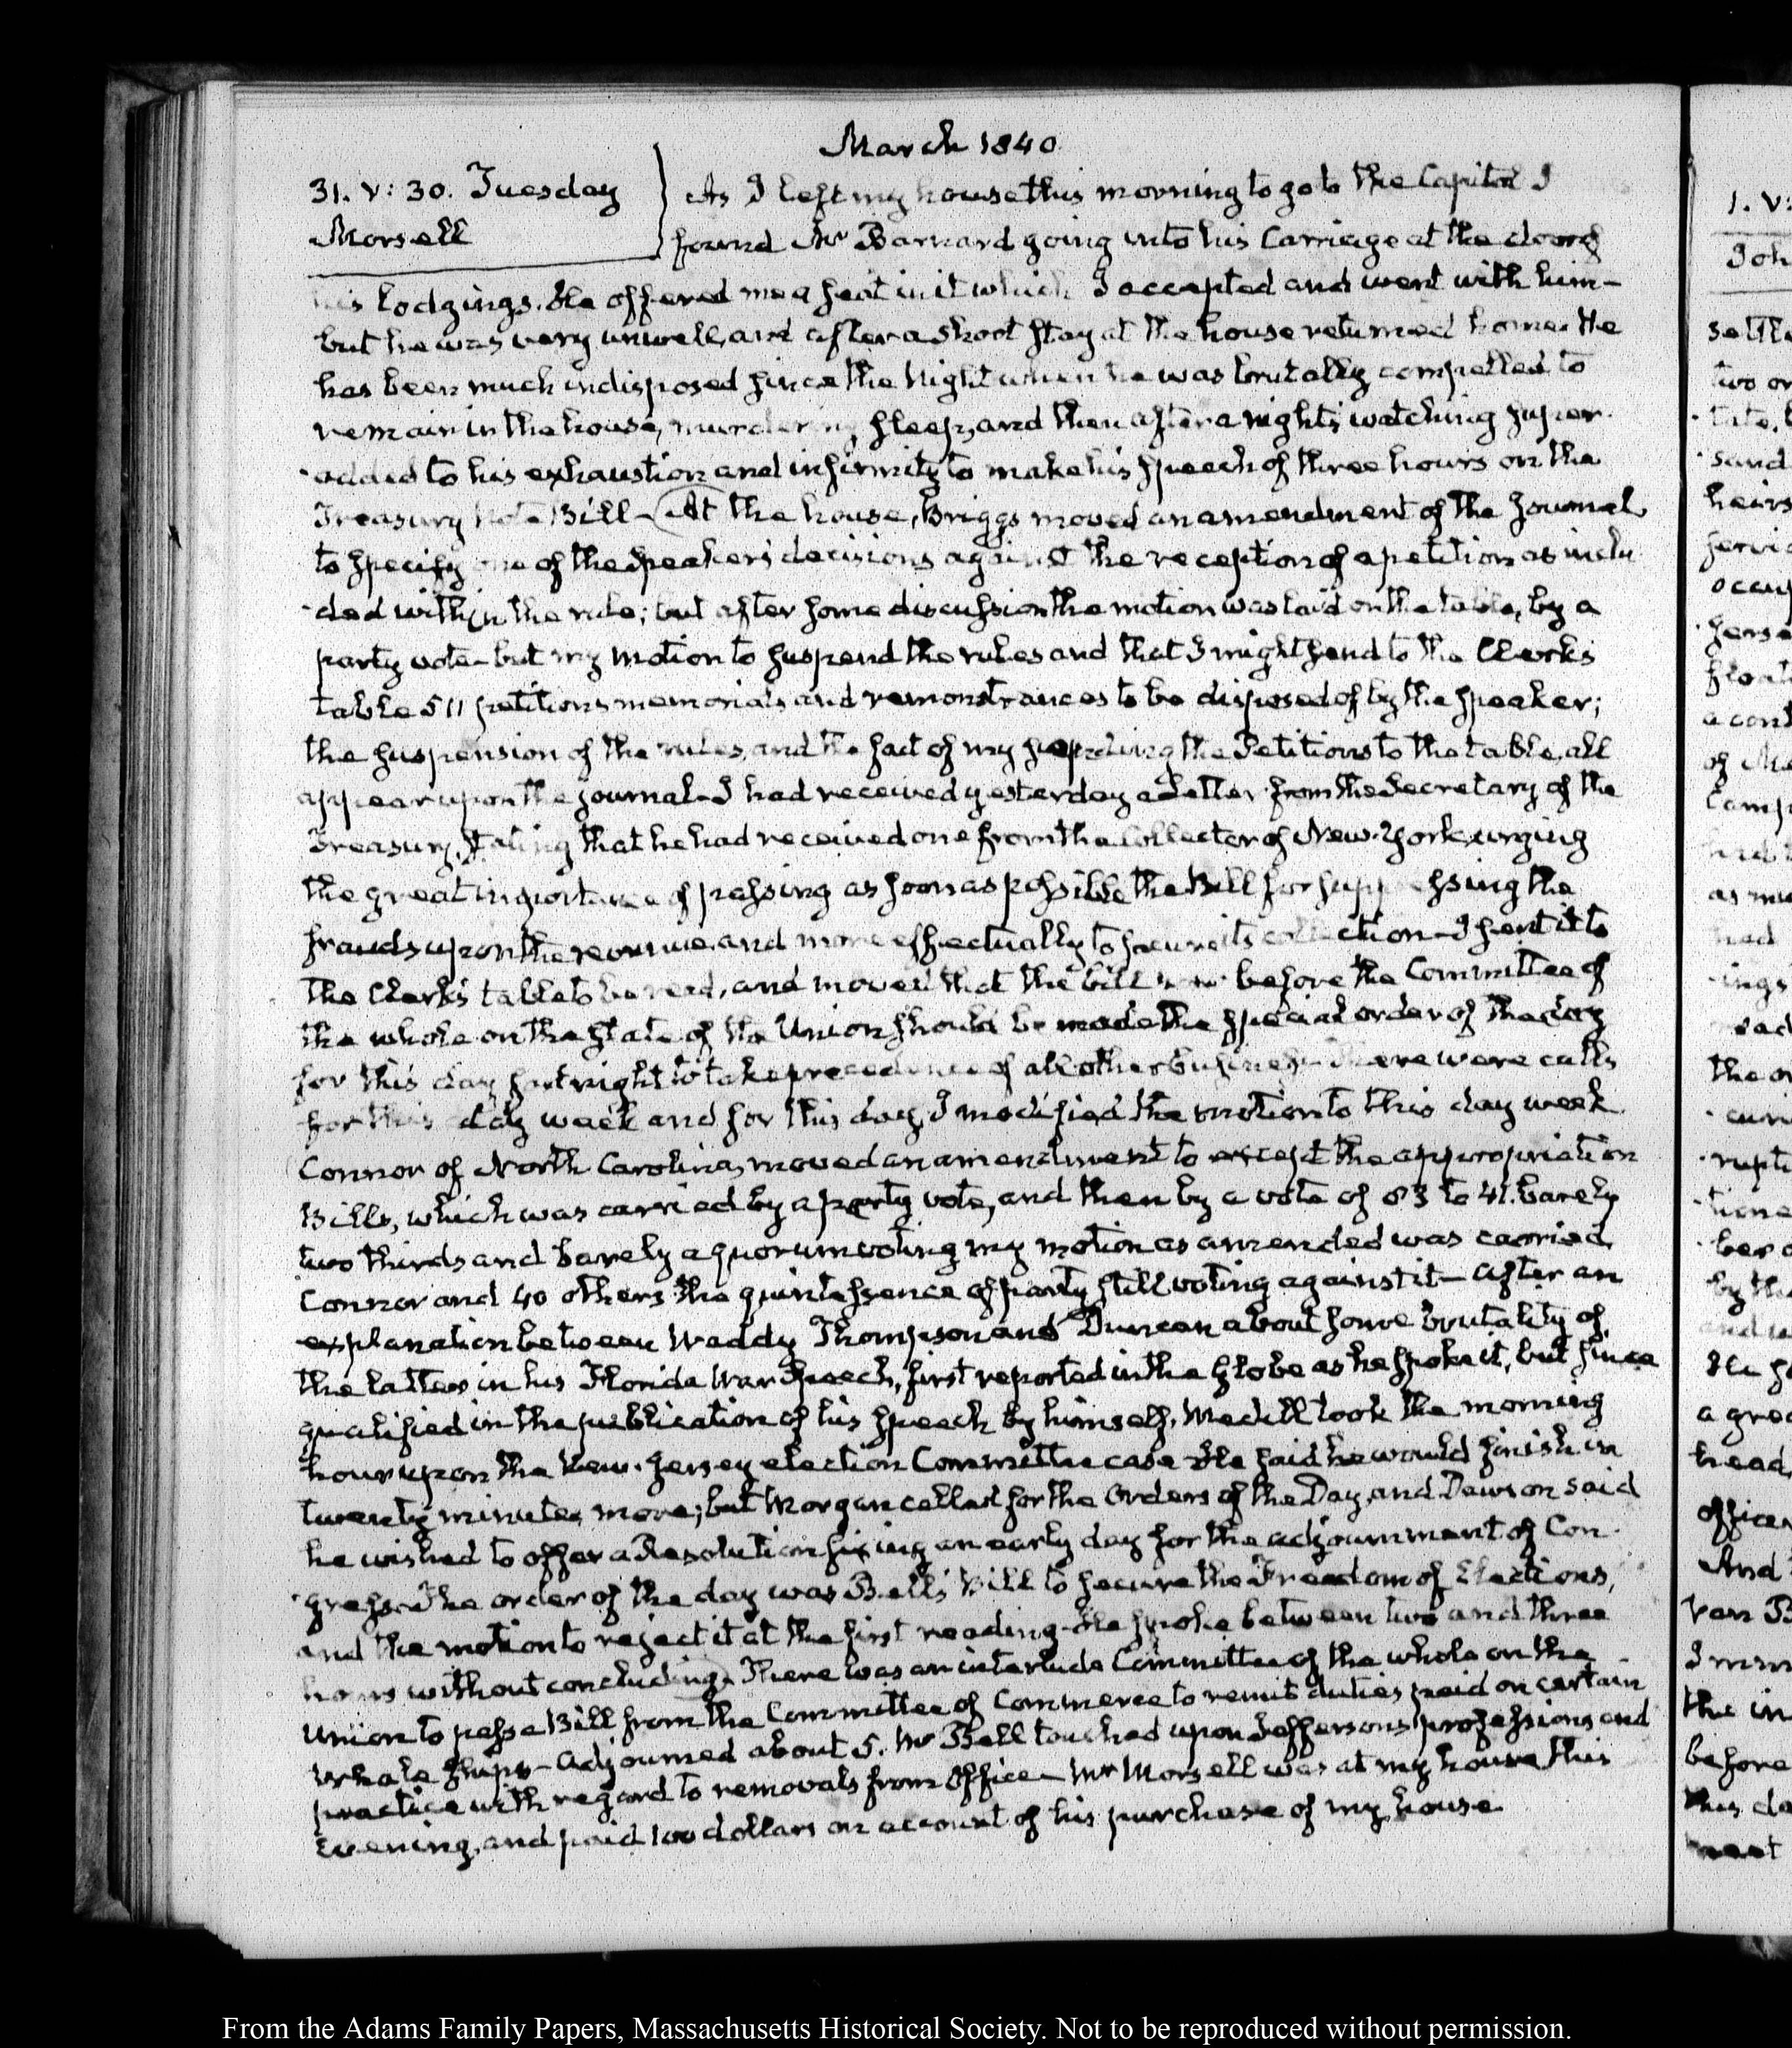 March 1840
31. V: 30. Tuesday
Morsell
As I left my house this morning to go to the Capitol I
found Mr Barnard going into his Carriage at the door of
his lodgings. He offered me a seat in it which I accepted and went with him—
but he was very unwell, and after a short stay at the house returned home. He
has been much indisposed since the Night when he was brutally compelled to
remain in the house, murdering sleep, and then after a night's watching super
-added to his exhaustion and infirmity to make his speech of three hours on the
Treasury Note Bill—At the house, Briggs moved an amendment of the Journal
to specify one of the Speaker's decisions against the reception of a petition as inclu
-ded within the rule; but after some discussion the motion was laid on the table, by a
party vote—but my motion to suspend the rules and that I might send to the Clerk's
table 511 petitions memorials and remonstrances to be disposed of by the Speaker;
the suspension of the rules, and the fact of my sending the Petitions to the table, all
appear upon the journal—I had received yesterday a Letter from the Secretary of the
Treasury, stating that he had received one from the Collector of New-York, urging
the great importance of passing as soon as possible the Bill for suppressing the
frauds upon the revenue, and more effectually to secure its collection—I sent it to
the Clerk's table to be read, and moved that the bill now before the Committee of
the whole on the State of the Union should be made the special order of the day
for this day fortnight to take precedence of all other business—There were calls
for this day week and for this day, I modified the motion to this day week
Connor of North Carolina, moved an amendment to except the appropriation
Bills, which was carried by a party vote, and then by a vote of 83 to 41. barely
two thirds and barely a quorum voting my motion as amended was carried,
Connor and 40 others the quintessence of party still voting against it—After an
explanation between Waddy Thompson and Duncan about some brutality of
the latter in his Florida War Speech, first reported in the Globe as he spoke it, but since
qualified in the publication of his speech by himself, Medill took the morning
hour upon the New-Jersey election Committee case—He said he would finish in
twenty minutes more; but Morgan called for the Orders of the Day, and Dawson said
he wished to offer a Resolution fixing an early day for the adjournment of Con
-gress. The order of the day was Bell's Bill to secure the Freedom of Elections,
and the motion to reject it at the first reading—He spoke between two and three
hours without concluding. There was an interlude Committee of the whole on the
Union to pass a Bill from the Committee of Commerce to remit duties paid on certain
Whale ships—Adjourned about 5. Mr Bell touched upon Jefferson's professions and
practice with regard to removals from Office—Mr Morsell was at my house this
Evening, and paid 100 dollars on account of his purchase of my house
1. V:
Joh
From the Adams Family Papers, Massachusetts Historical Society. Not to be reproduced without permission.